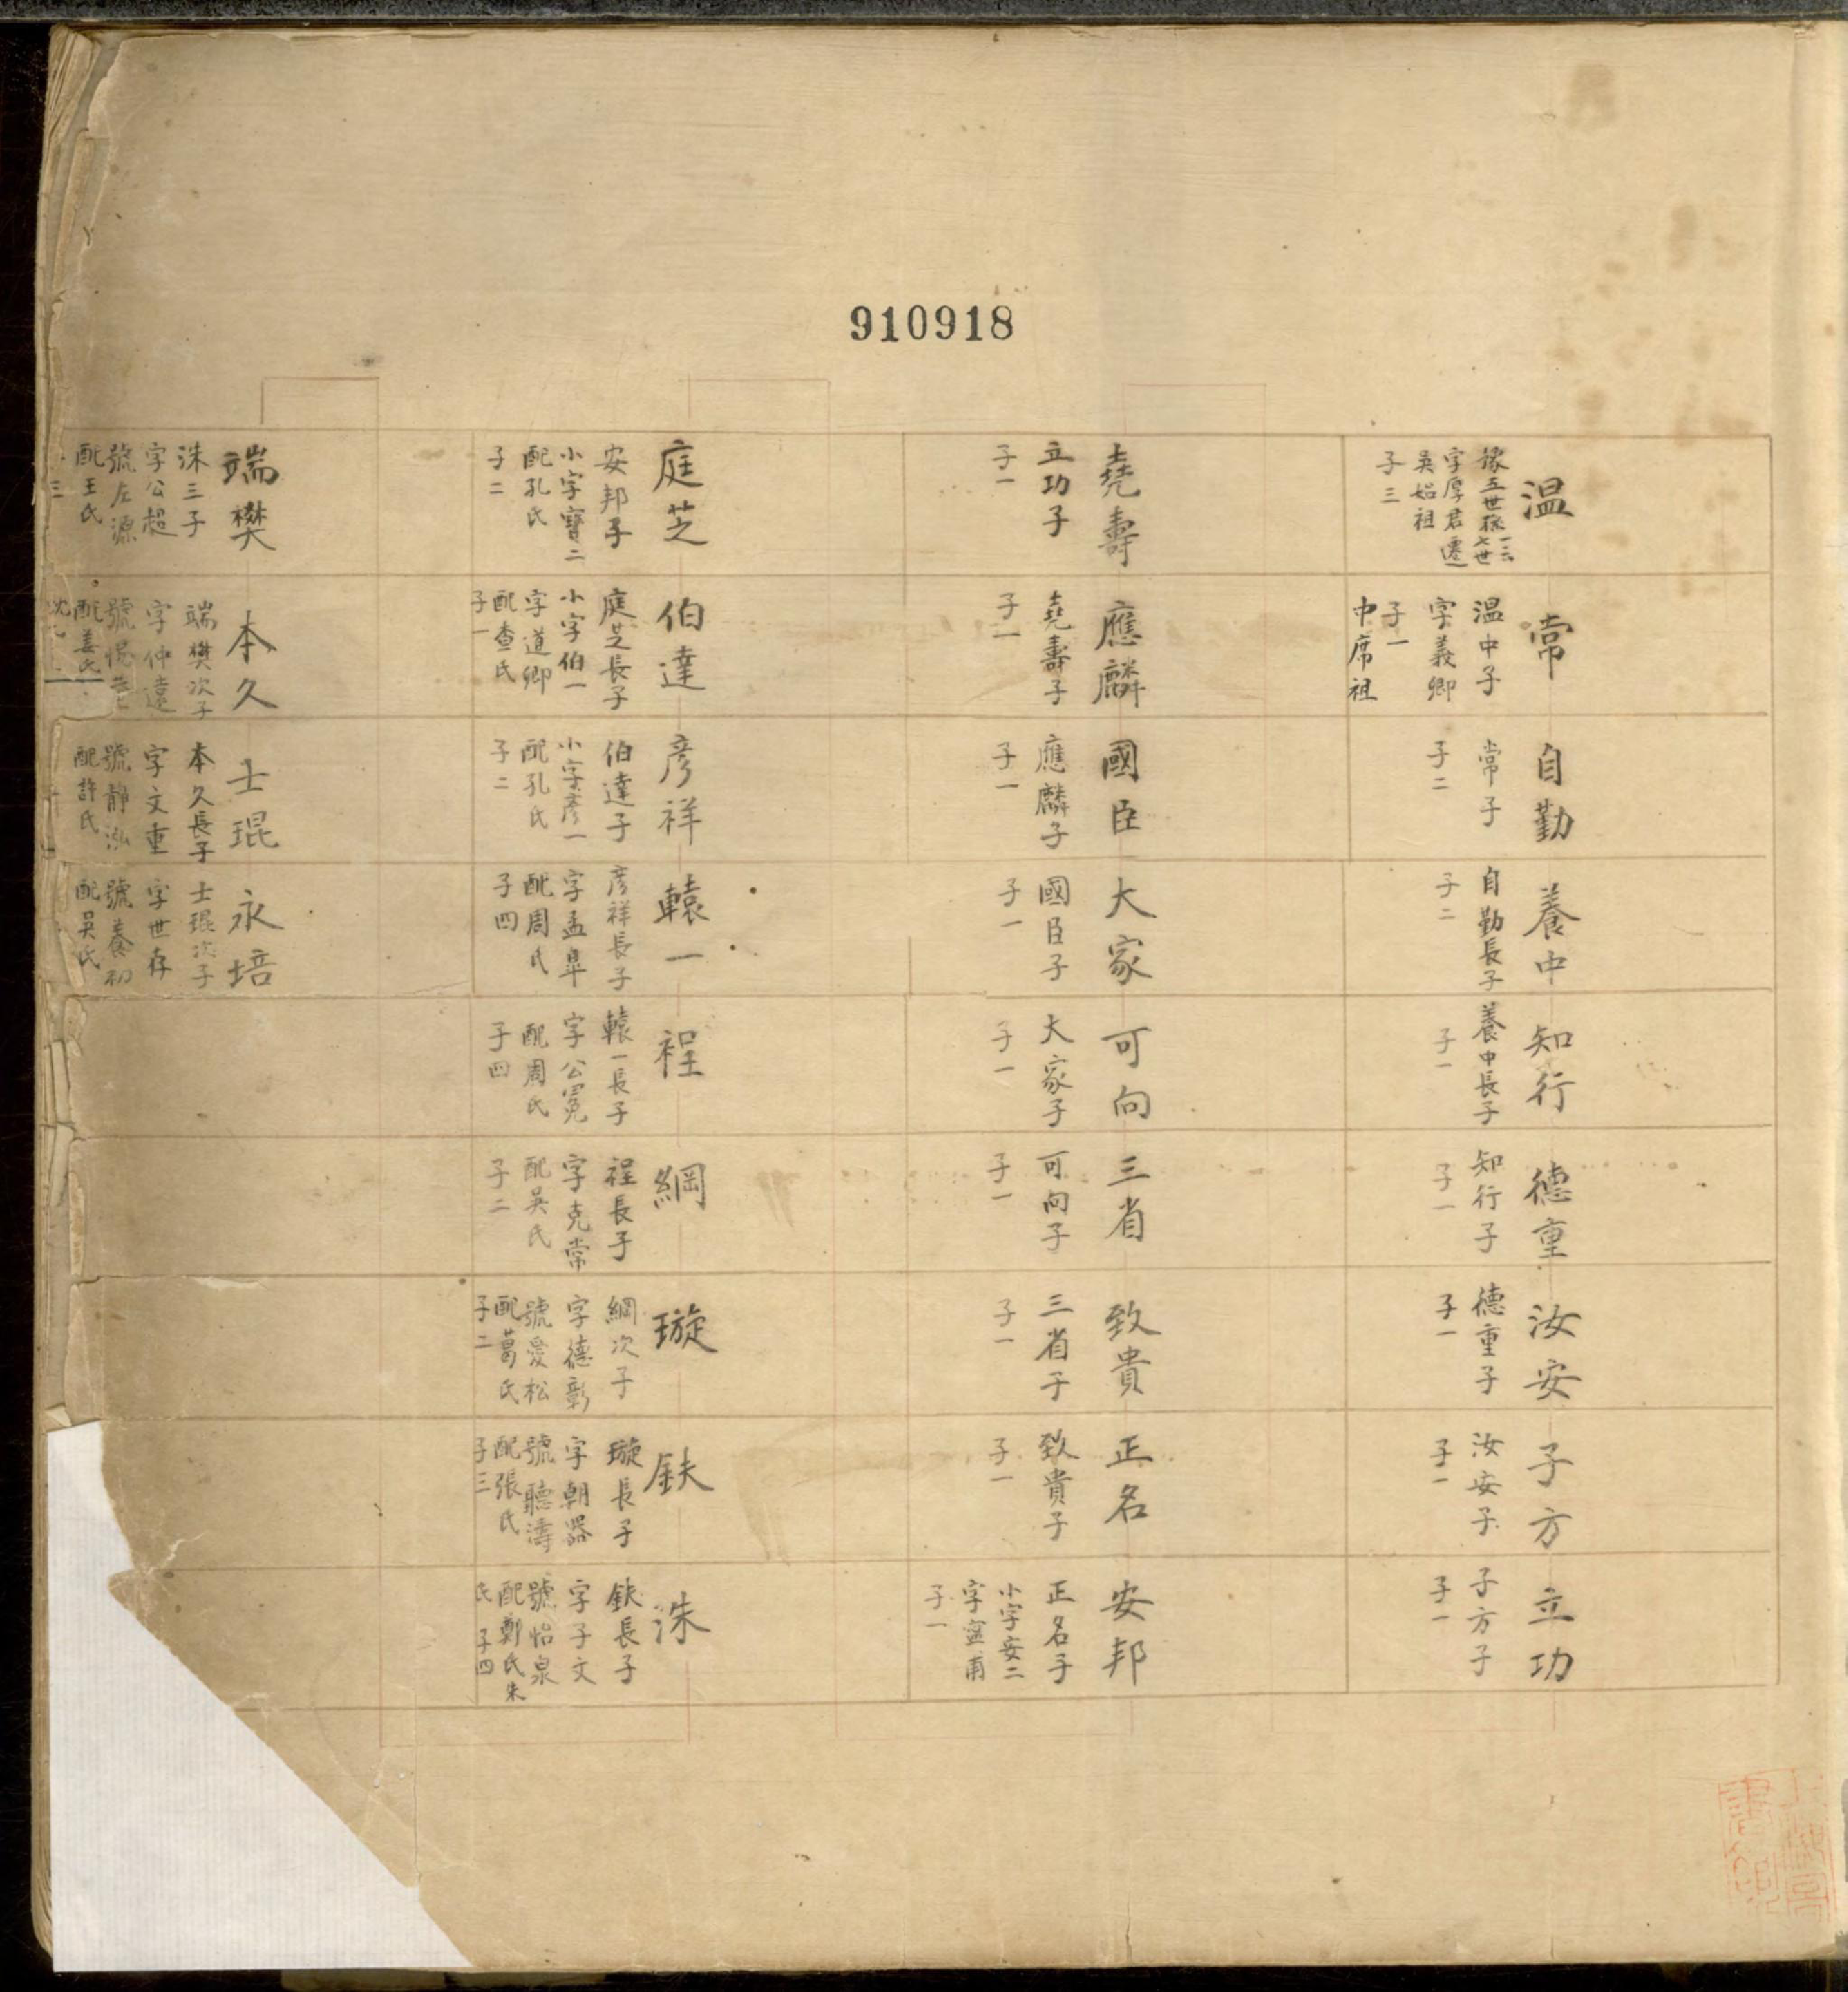 910918
温
字厚君遷
吳始祖
子三
常
温中子
字義卿
子一
中席祖
自勤
常子
子二
養中
自勤長子
子二
知行
養中長子
子一
德重
知行子
子一
汝安
德重子
子一
子方
汝安子
子一
立功
子方子
子一
堯壽
立功子
子一
應麟
堯壽子
子一
國臣
應麟子
子一
大家
國臣子
子一
可向
大家子
子一
三省
可向子
子一
致貴
三省子
子一
正名
致貴子
子一
安邦
正名子
小字安二
字寍甫
子一
庭芝
安邦子
小字寶二
配孔氏
子二
伯達
庭芝長子
小字伯一
字道卿
配查氏
子一
彦祥
伯達子
小字彦一
配孔氏
子二
轅一
彦祥長子
字孟臯
配周氏
子四
裎
轅一長子
字公冕
配周氏
子四
綱
裎長子
字克常
配吳氏
子二
璇
綱次子
字德彰
號愛松
配葛氏
子二
鈇
璇長子
字朝器
號聽濤
配張氏
子三
洙
鈇長子
字子文
號怡泉
配鄭氏朱
氏 子四
端樊
洙三子
字公超
號左源
配王氏
三
本久
端樊次子
字仲遠
配姜氏
士琨
本久長子
字文重
號靜泓
配許氏
永培
士琨次子
字世存
號養初
配吳氏